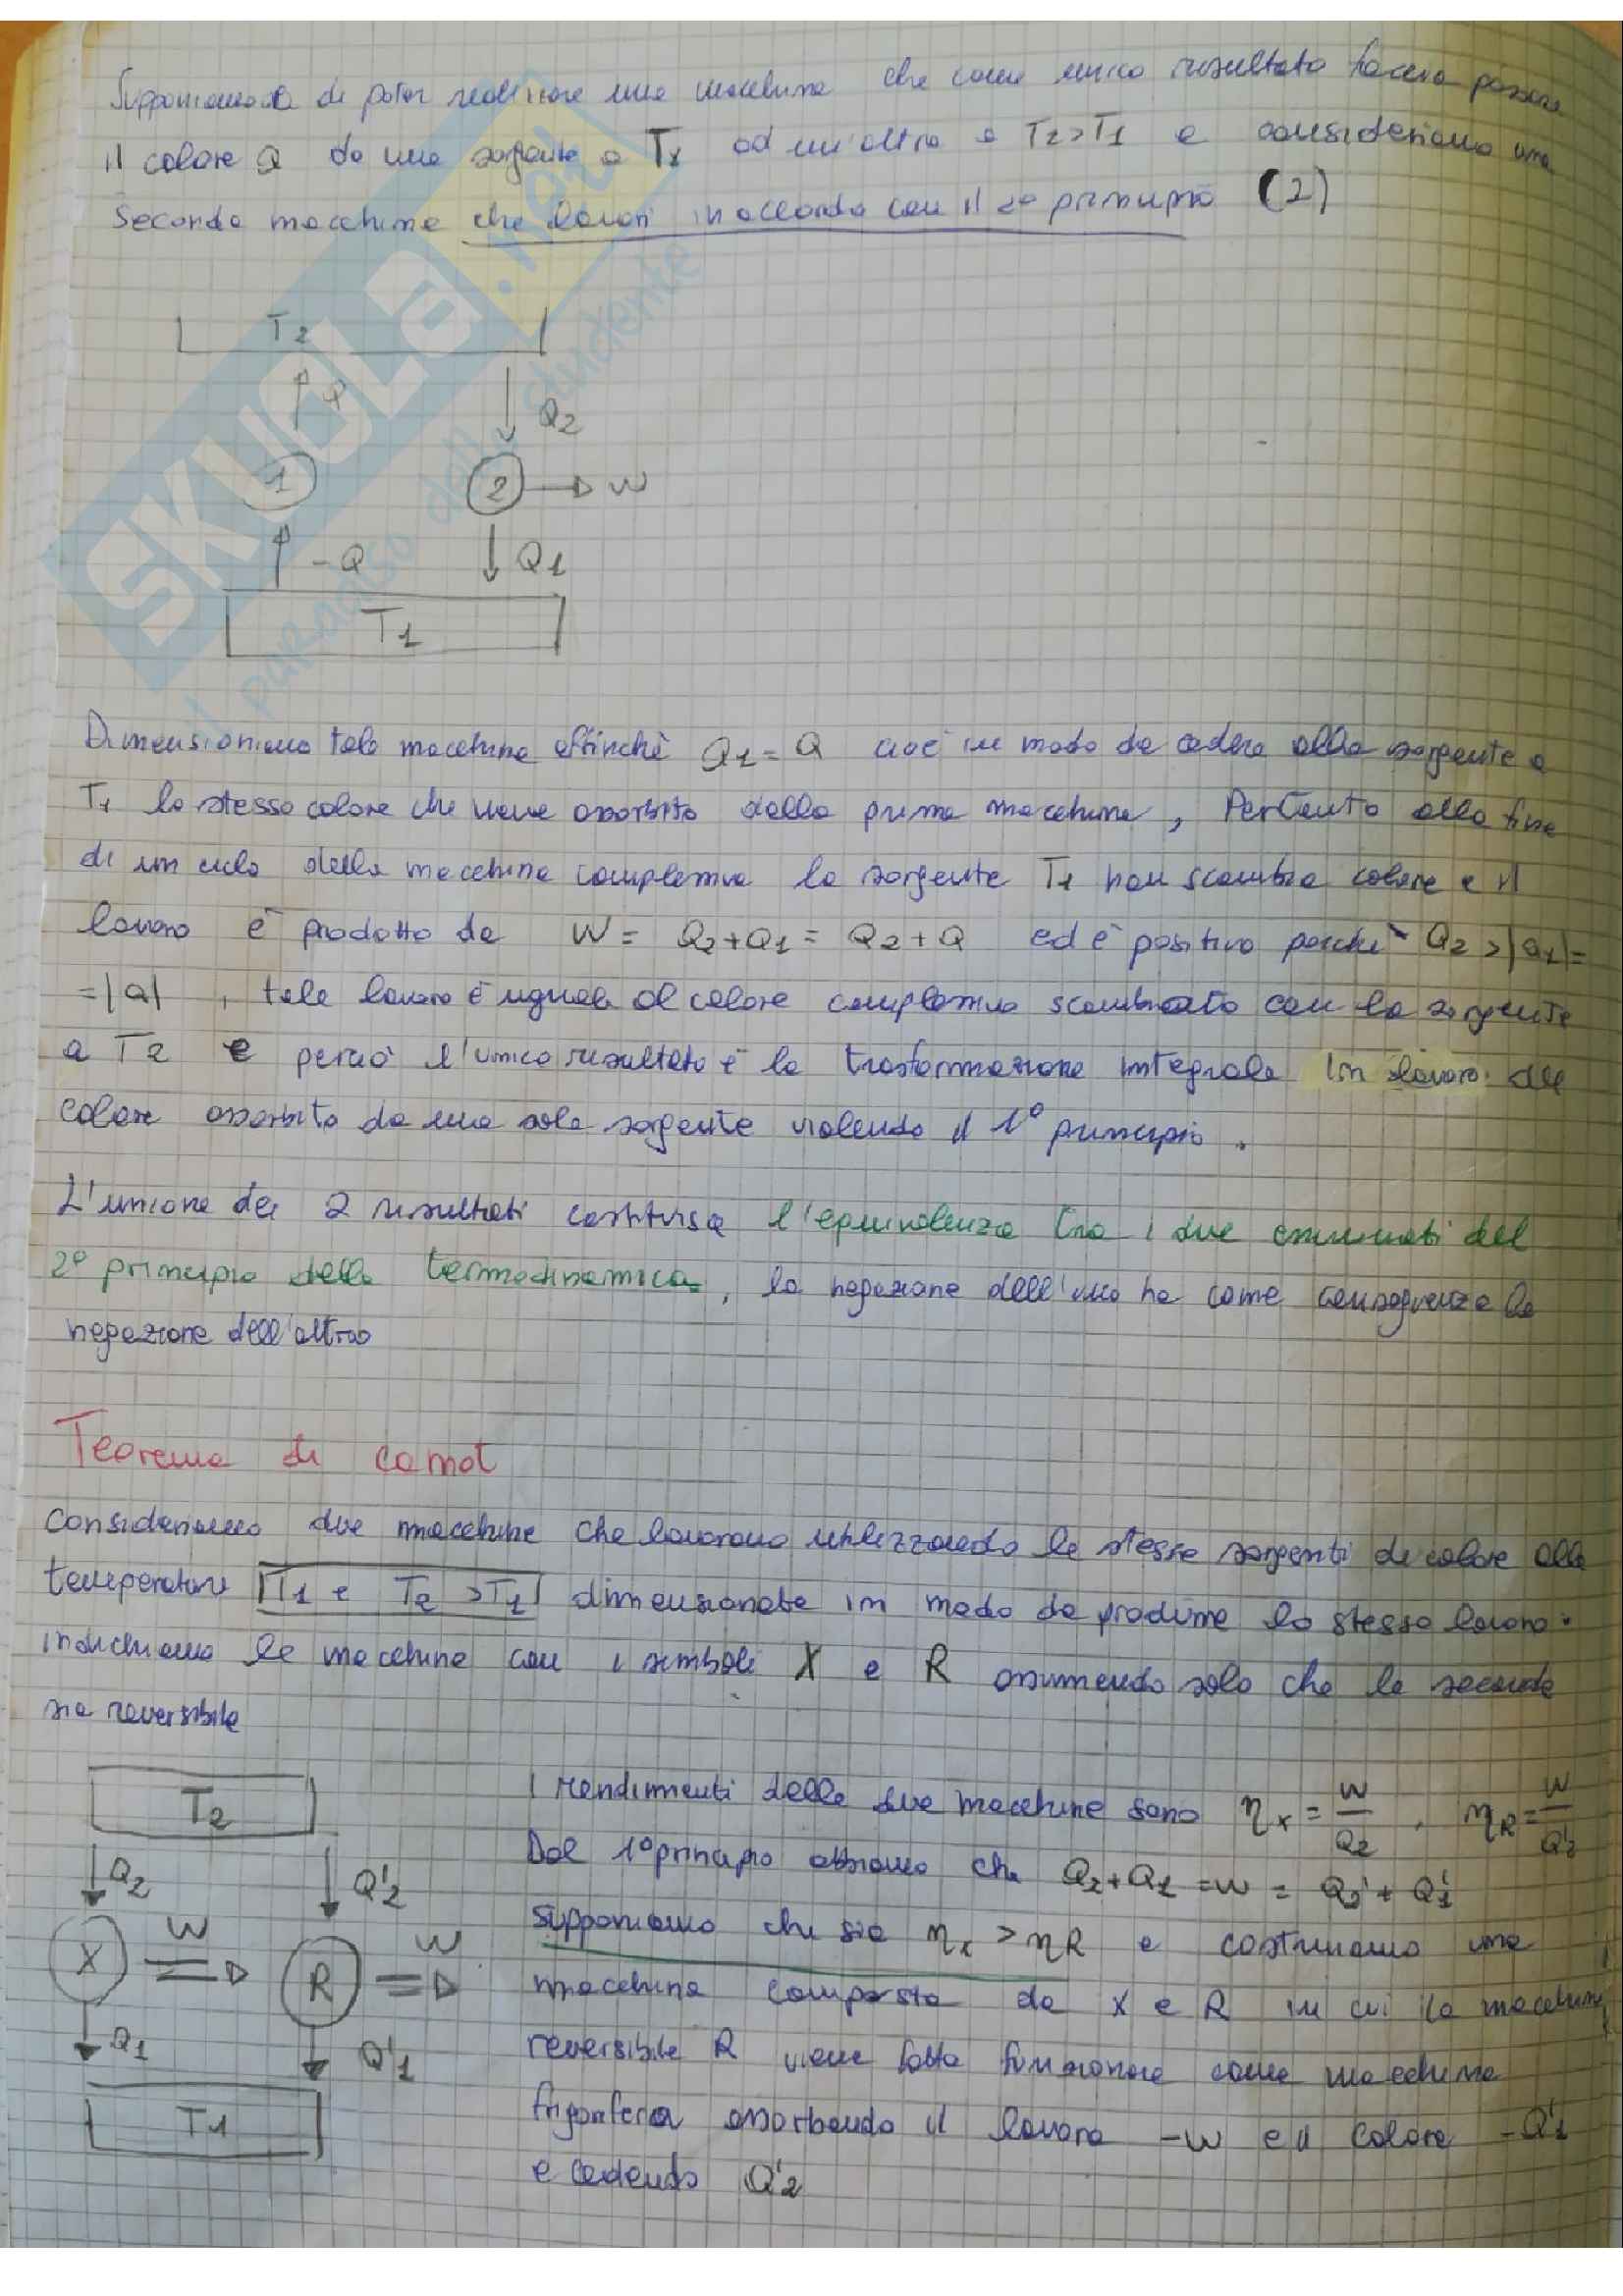 Supponiamo di poter realizzare una macchina che come unico risultato faccia passare
il calore Q da una sorgente a T1 ad un'altra a T2>T1 e consideriamo una
seconda macchina che lavori in accordo con il 2° principio (2)
T2
Q
Q2
1
2
W
-Q
Q1
T1
Dimensioniamo tale macchina affinchè Q1=Q cioè in modo da cedere alla sorgente a
T1 lo stesso calore che viene assorbito dalla prima macchina, Pertanto alla fine
di un ciclo della macchina complessiva la sorgente T1 non scambia calore e il
lavoro è prodotto da W = Q2+Q1 = Q2+Q ed è positivo perchè Q2 >|Q1|=
=|Q| , tale lavoro è uguale al calore complessivo scambiato con la sorgente
a T2 e perciò l'unico risultato è la trasformazione integrale in lavoro del
calore assorbito da una sola sorgente violando il 1° principio .
L'unione dei 2 risultati costituisce l'equivalenza tra i due enunciati del
2° principio della termodinamica, la negazione dell'uno ha come conseguenza la
negazione dell'altro
Teorema di carnot
Consideriamo due macchine che lavorano utilizzando le stesse sorgenti di calore alle
temperature T1 e T2 >T1 dimensionate in modo da produrre lo stesso lavoro.
indichiamo le macchine con i simboli X e R assumendo solo che la seconda
sia reversibile
T2
Q2
Q'2
X
W
R
W
Q1
Q'1
T1
I rendimenti delle due macchine sono ηx = W/Q2 , ηR = W/Q'2
Dal 1° principio abbiamo che Q2+Q1 =W = Q'2 + Q'1
supponiamo che sia ηx > ηR e costruiamo una
macchina composta da X e R in cui la macchina
reversibile R viene fatta funzionare come macchina
frigorifera assorbendo il lavoro -W e il calore -Q'1
e cedendo Q'2
SKUOLA.net
il paradiso dello studente